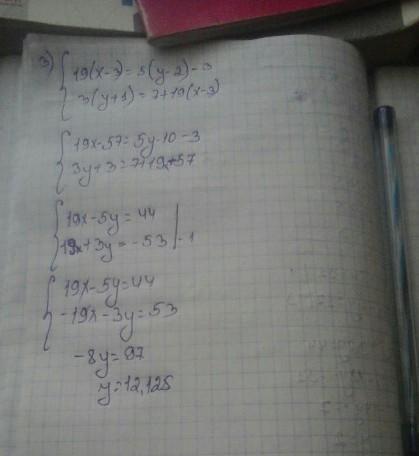 3) 19(x-3)=5(y-2)-3
3(y+1)=7+19(x-3)
19x-57=5y-10-3
3y+3=7+19x-57
19x-5y=44
19x+3y=-53 | -1
19x-5y=44
-19x-3y=53
-8y=97
y=12,125